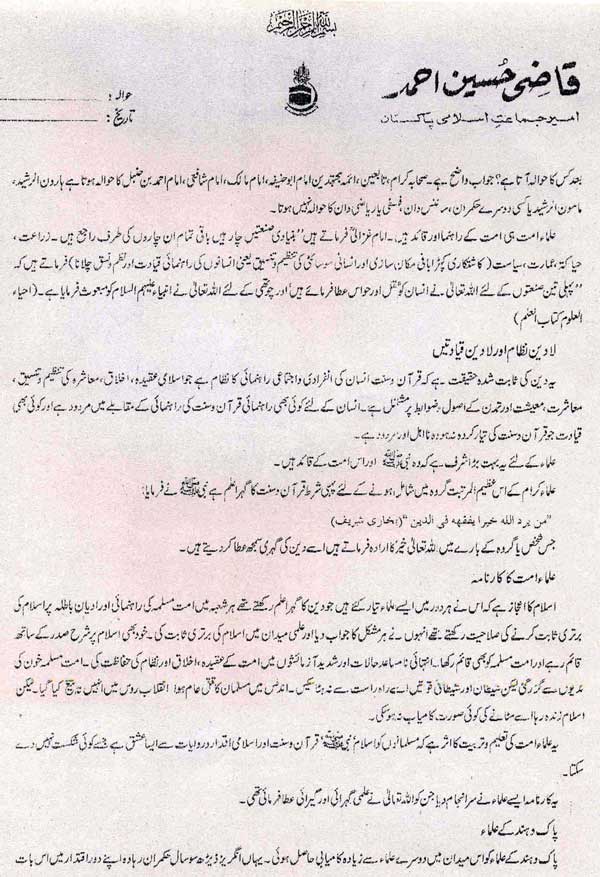 بسم الله الرحمن الرحیم
قاضی حُسین احمد
امیر جماعتِ اسلامی پاکستان
حوالہ :
تاریخ :
بعد کس کا حوالہ آتا ہے؟ جواب واضح ہے۔ صحابہ کرام، تابعین، ائمہ مجتہدین امام ابوحنیفہ، امام مالک، امام شافعی، امام احمد بن حنبل کا حوالہ ہوتا ہے ہارون الرشید،
مامون الرشید یا کسی دوسرے حکمران، سائنس دان، فلسفی یا ریاضی دان کا حوالہ نہیں ہوتا۔
علماءِ امت ہی امت کے راہنما اور قائد ہیں۔ امام غزالیؒ فرماتے ہیں "بنیادی صنعتیں چار ہیں باقی تمام ان چاروں کی طرف راجع ہیں۔ زراعت،
حیاکۃ، عمارت، سیاست (کاشتکاری کپڑا بافی مکان سازی اور انسانی سوسائٹی کی تنظیم و تنسیق یعنی انسانوں کی راہنمائی قیادت اور نظم و نسق چلانا) فرماتے ہیں کہ
"پہلی تین صنعتوں کے لئے اللہ تعالیٰ نے انسان کو عقل اور حواس عطا فرمائے ہیں اور چوتھی کے لئے اللہ تعالیٰ نے انبیاء علیہم السلام کو مبعوث فرمایا ہے۔ (احیاء
العلوم کتاب العلم)
لادین نظام اور لادین قیادتیں
یہ دین کی ثابت شدہ حقیقت ہے کہ قرآن و سنت انسان کی انفرادی و اجتماعی راہنمائی کا نظام ہے جو اسلامی عقیدہ، اخلاق، معاشرہ کی تنظیم و تنسیق،
معاشرت، معیشت اور تمدن کے اصول و ضوابط پر مشتمل ہے۔ انسان کے لئے کوئی بھی راہنمائی قرآن و سنت کی راہنمائی کے مقابلے میں مردود ہے اور کوئی بھی
قیادت جو قرآن و سنت کی تیار کردہ نہ ہو وہ نااہل اور مردود ہے۔
علماء کے لئے یہ بہت بڑا شرف ہے کہ وہ نبی ﷺ اور اس امت کے قائد ہیں۔
علماءِ کرام کے اس عظیم المرتبت گروہ میں شامل ہونے کے لئے پہلی شرط قرآن و سنت کا گہرا علم ہے نبی ﷺ نے فرمایا:
"من یرد الله خیرا یفقهه فی الدین" (بخاری شریف)
جس شخص یا گروہ کے بارے میں اللہ تعالیٰ خیر کا ارادہ فرماتے ہیں اسے دین کی گہری سمجھ عطا کر دیتے ہیں۔
علماءِ امت کا کارنامہ
اسلام کا اعجاز ہے کہ اس نے ہر دور میں ایسے علماء تیار کئے ہیں جو دین کا گہرا علم رکھتے تھے ہر شعبہ میں امت مسلمہ کی راہنمائی اور ادیان باطلہ پر اسلام کی
برتری ثابت کرنے کی صلاحیت رکھتے تھے انہوں نے ہر مشکل کا جواب دیا اور علمی میدان میں اسلام کی برتری ثابت کی۔ خود بھی اسلام پر شرح صدر کے ساتھ
قائم رہے اور امت مسلمہ کو بھی قائم رکھا۔ انتہائی نامساعد حالات اور شدید آزمائشوں میں امت کے عقیدہ، اخلاق اور نظام کی حفاظت کی۔ امت مسلمہ خون کی
ندیوں سے گزر گئی لیکن شیطان اور شیطانی قوتیں اسے راہ راست سے نہ ہٹا سکیں۔ اندلس میں مسلمان کا قتل عام ہوا انقلاب روس میں انہیں تہ تیغ کیا گیا۔ لیکن
اسلام زندہ رہا اسے مٹانے کی کوئی صورت کامیاب نہ ہو سکی۔
یہ علماءِ امت کی تعلیم و تربیت کا اثر ہے کہ مسلمانوں کو اسلام، نبی ﷺ، قرآن و سنت اور اسلامی اقدار و روایات سے ایسا عشق ہے جسے کوئی شکست نہیں دے
سکتا۔
یہ کارنامہ ایسے علماء نے سرانجام دیا جن کو اللہ تعالیٰ نے علمی گہرائی اور گیرائی عطا فرمائی تھی۔
پاک و ہند کے علماء
پاک و ہند کے علماء کو اس میدان میں دوسرے علماء سے زیادہ کامیابی حاصل ہوئی۔ یہاں انگریز ڈیڑھ سو سال حکمران رہا وہ اپنے دور اقتدار میں اس بات